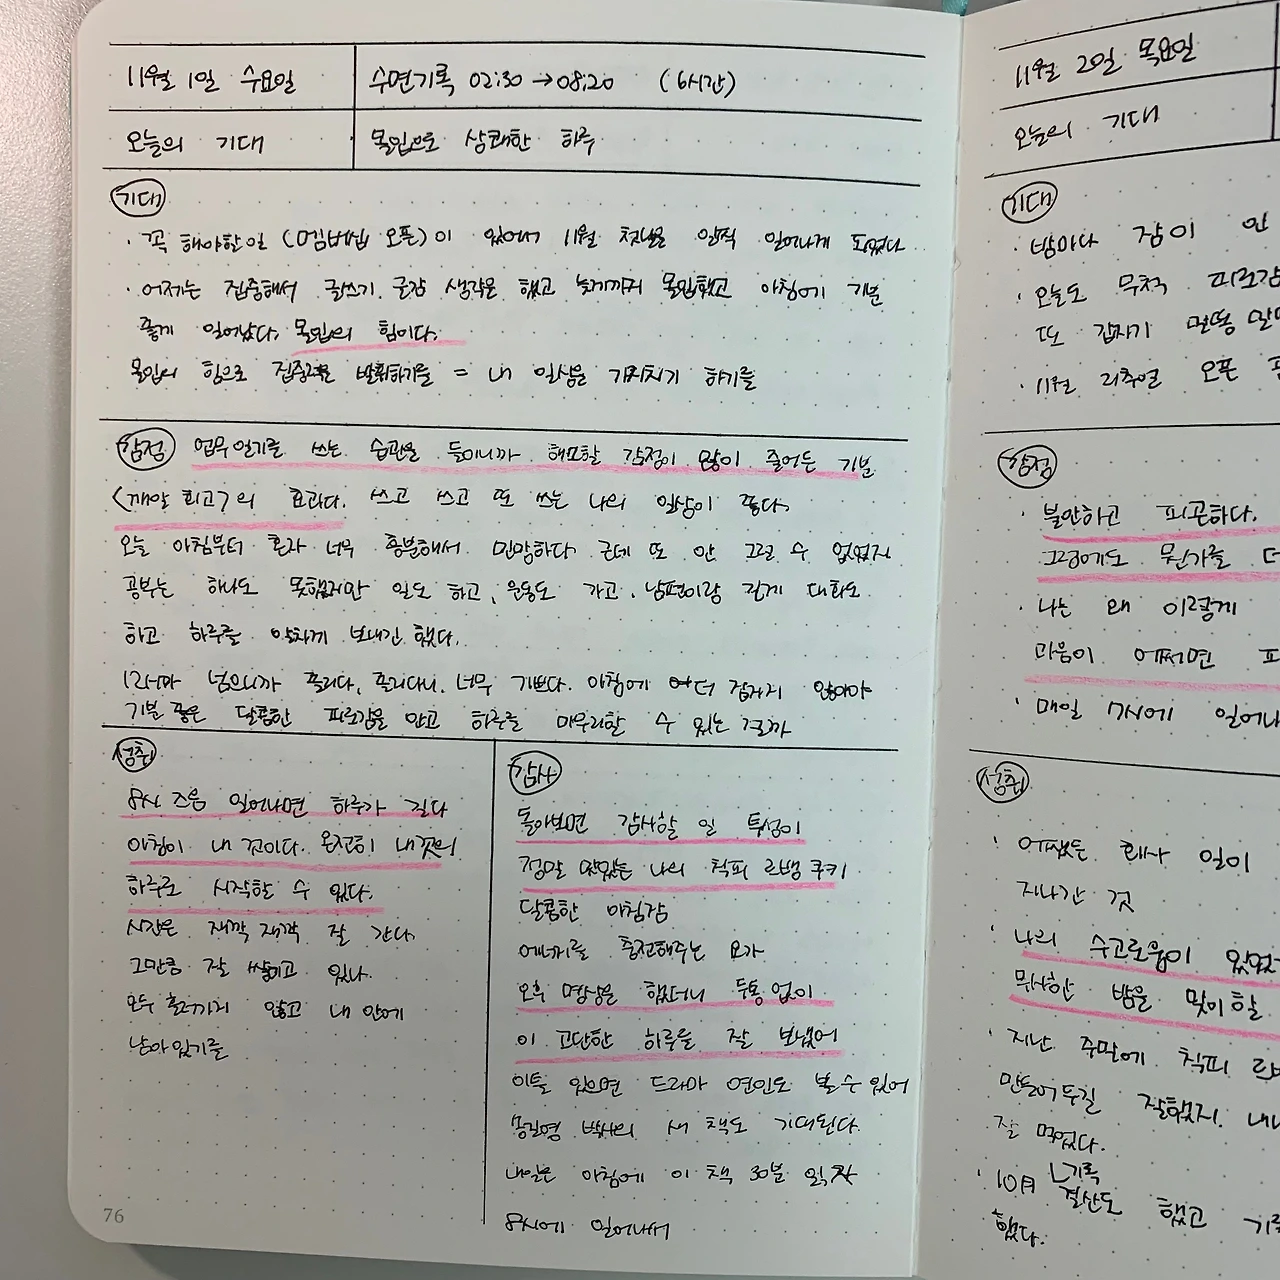 11월 1일 수요일
수면기록 02:30 → 08:20 (6시간)
오늘의 기대
몰입으로 상쾌한 하루
기대
· 꼭 해야한일 (멤버쉽 오픈)이 있어서 11월 첫날을 일찍 일어나게 되었다
· 어제는 집중해서 글쓰기, 글감 생각을 했고 늦게까지 몰입했고 아침에 기분
좋게 일어났다. 몰입의 힘이다.
몰입의 힘으로 집중력을 발휘하기를 = 내 일상을 가지치기 하기를
감정 업무일기를 쓰는 습관을 들이니까 해소할 감정이 많이 줄어든 기분
<깨알 회고>의 효과다. 쓰고 쓰고 또 쓰는 나의 일상이 좋다.
오늘 아침부터 혼자 너무 흥분해서 민망하다 근데 또 안 그럴 수 없었지
공부는 하나도 못했지만 일도 하고, 운동도 가고, 남편이랑 길게 대화도
하고 하루를 알차게 보내긴 했다.
12시가 넘으니까 졸리다, 졸리다니, 너무 기쁘다. 아침에 더 잠자지 않아야
기분 좋은 달콤한 피로감을 안고 하루를 마무리할 수 있는 걸까
성취
8시 즈음 일어나면 하루가 길다
아침이 내 것이다. 온전히 내 것의
하루로 시작할 수 있다.
시간은 재깍 재깍 잘 간다.
그만큼 잘 쌓이고 있나.
모두 흘러가지 않고 내 안에
남아있기를
감사
돌아보면 감사할 일 투성이
정말 맛있는 나의 척피 르뱅 쿠키
달콤한 아침잠
에너지를 충전해주는 요가
오후 명상을 했더니 두통 없이
이 고단한 하루를 잘 보냈어
이틀 있으면 드라마 연인도 볼 수 있어
송길영 박사의 새 책도 기대된다.
내일은 아침에 이 책 30분 읽자
8시에 일어나서
76
11월 2일 목요일
오늘의 기대
기대
· 밤마다 잠이 안
· 오늘도 무척 피로감
또 갑자기 말똥 말똥
· 11월 리추얼 오픈
감정
· 불안하고 피곤하다.
그럼에도 뭔가를 더
· 나는 왜 이렇게
마음이 어쩌면
· 매일 7시에 일어나
성취
· 어쨌든 회사 일이
지나간 것
· 나의 수고로움이 있었
무사한 밤을 맞이할
· 지난 주말에 척피 르
만들어두길 잘했지. 내
잘 먹었다.
· 10月 ㄴ기록 결산도 했고
했다.